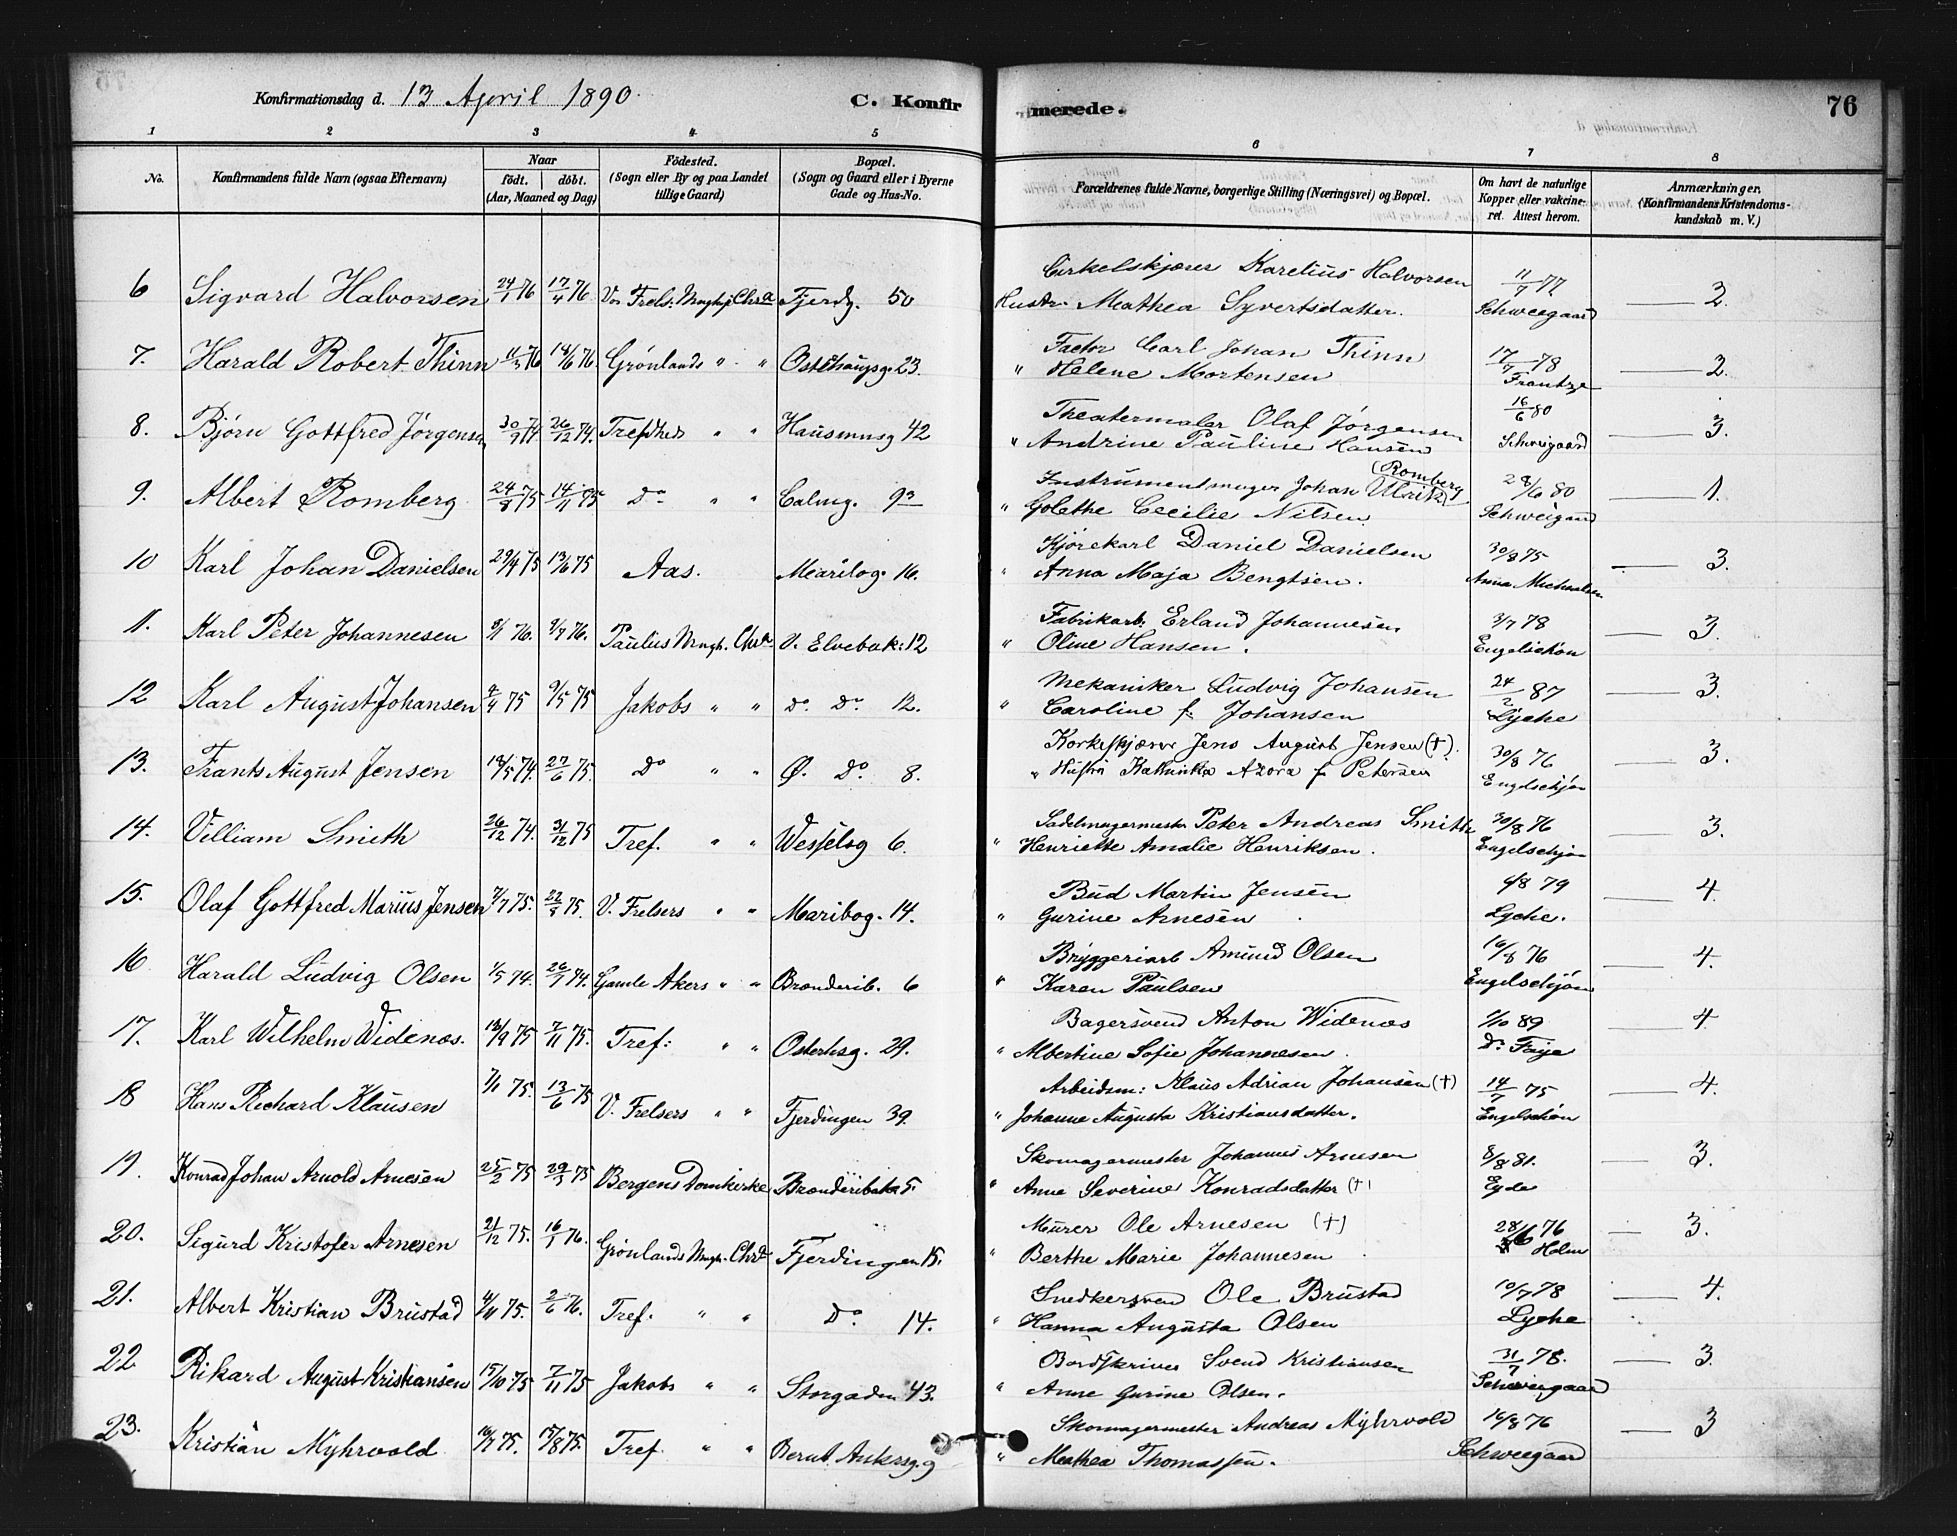 Konfirmationsdag d. 13 April 1890.
C. Konfirmerede.
76
1 2 3 4 5 6 7 8
No.
Konfirmandens fulde Navn (ogsaa Efternavn)
Naar
födt. döbt.
(Aar, Maaned og Dag)
Födested.
(Sogn eller By og paa Landet tillige Gaard)
Bopæl.
(Sogn og Gaard eller i Byerne Gade og Hus-No.
Forældrenes fulde Navne, borgerlige Stilling (Næringsvei) og Bopæl.
Om havt de naturlige Kopper eller vakcineret. Attest herom.
Anmærkninger.
(Konfirmandens Kristendomskundskab m. V.)
6 Sigvard Halvorsen 24/1 76 17/4 76 Vor Frels. Mngh. Chra Fjerdg. 50 Cirkelskjærer Karelius Halvorsen 11/7 77 3.
Hustr. Mathea Syvertsdatter. Schweegaard
7. Harald Robert Thinn 11/3 76 14/6 76 Grønlands " " Ostehaugsg. 23. Factor Carl Johan Thinn 17/7 78 2.
" Helene Mortensen Frantze
8. Bjørn Gottfred Jørgensen 30/9 74 26/12 74. Trefdheds " " Hausmnsg 42 Theatermaler Olaf Jørgensen 16/6 80 3.
" Andrine Pauline Hansen Schweigaard
9. Albert Romberg 24/8 75 14/11 75 Do " " Calmg. 9 Instrumentmager Johan Ulrik (Romberg) 28/10 80 1.
" Golethe Cecilie Nilsen Schweigaard
10 Karl Johan Danielsen 29/4 75 13/6 75 Aas. Maribog. 16. Kjørekarl Daniel Danielsen 30/8 75 3.
" Anna Maja Bengtsen. Anna Michaelsen
11. Karl Peter Johannesen 76. 9/7 76. Paulus Mngh. Chra V. Elvebak: 12 Fabrikarb: Erland Johannesen 3/7 78 3.
" Oline Hansen. Engelschøn
12 Karl August Johansen 75 9/5 75 Jakobs " " do Do 12. Mekaniker Ludvig Johansen 24/2 87 3.
" Caroline f. Johansen Lyche
13. Frants August Jensen 18/5 74. 27/6 75. Do " " Ø. Do 8. Korkeskjærer Jens August Jensen (†). 30/8 76 3.
" Hustru Kathinka Azora f. Petersen Engelschjøn
14. Villiam Smith 26/12 74. 31/12 75 Tref. " " Wesselsg 6. Sadelmagermester Peter Andreas Smith 30/8 76 3.
" Henriette Amalie Henriksen. Engelschjøn
15. Olaf Gottfred Marius Jensen 7/7 75. 22/8 75. V. Frelsers " " Maribog. 14. Bud Martin Jensen 4/8 79 4.
" Gurine Arnesen Lyche.
16 Harald Ludvig Olsen 1/5 74. 26/7 74. Gamle Akers " " Brænderib. 6 Bryggeriarb Amund Olsen 16/8 76 4.
" Karen Paulsen Engelschjøn
17. Karl Wilhelm Widenæs. 13/9 75 7/11 75. Tref: " " Osterhsg. 29. Bagersvend Anton Widenæs 1/10 89 4.
" Albertine Sofie Johannesen. Dr Faye
18 Hans Richard Klausen 7/1 75. 13/6 75 V. Frelsers " " Fjerdingen 39. Arbeidsm: Klaus Adrian Johansen (†) 14/7 75 4.
" Johanne Augusta Kristiansdatter. Engelschøn
19. Konrad Johan Arnold Arnesen 25/2 75 29/3 75 Bergens Domkirke Brænderibakk 5. Skomagermester Johannes Arnesen 8/8 81. 3.
" Anne Severine Konradsdatter (†) Eyde
20. Sigurd Kristofer Arnesen 21/12 75. 16/1 76. Grønlands Mngh. Chra Fjerdingen 15. Murer Ole Arnesen (†) 28/6 76 3.
" Berthe Marie Johannesen Holm
21. Albert Kristian Brustad 4/11 75. 2/6 76. Tref. " " Do 14. Snedkersvend Ole Brustad 10/7 78 4.
" Hanna Augusta Olsen Lyche
22 Rikard August Kristiansen 15/10 75 7/11 75 Jakobs " " Storgaden 43. Bordskriver Svend Kristiansen 31/7 78. 3.
" Anne Gurine Olsen. Schweegaard
23. Kristian Myhrvold 16/7 75. 15/8 75. Tref. " " Bernt Ankersg. 9 Skomagermester Andreas Myhrvold 16/8 76 3
" Mathea Thomassen. Schweegaard